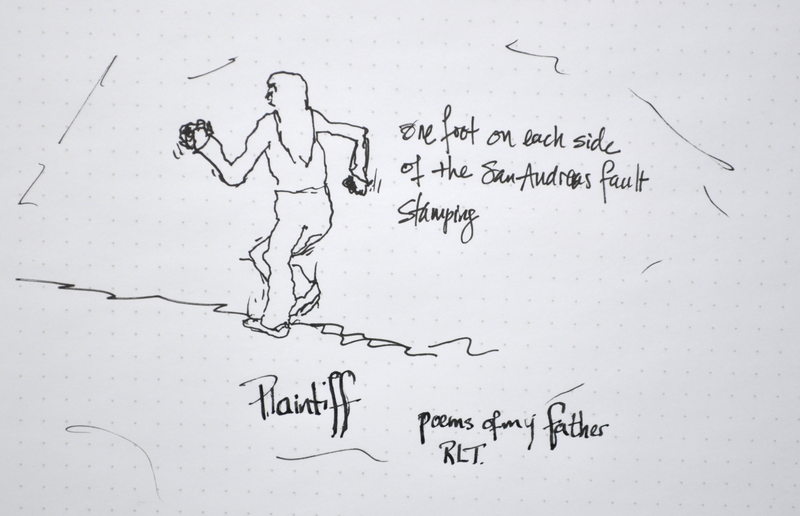 one foot on each side
of the San-Andreas fault
Stamping
Plaintiff
poems of my father
RLT.